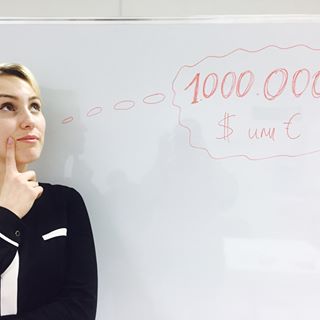 1000.000
$ или €